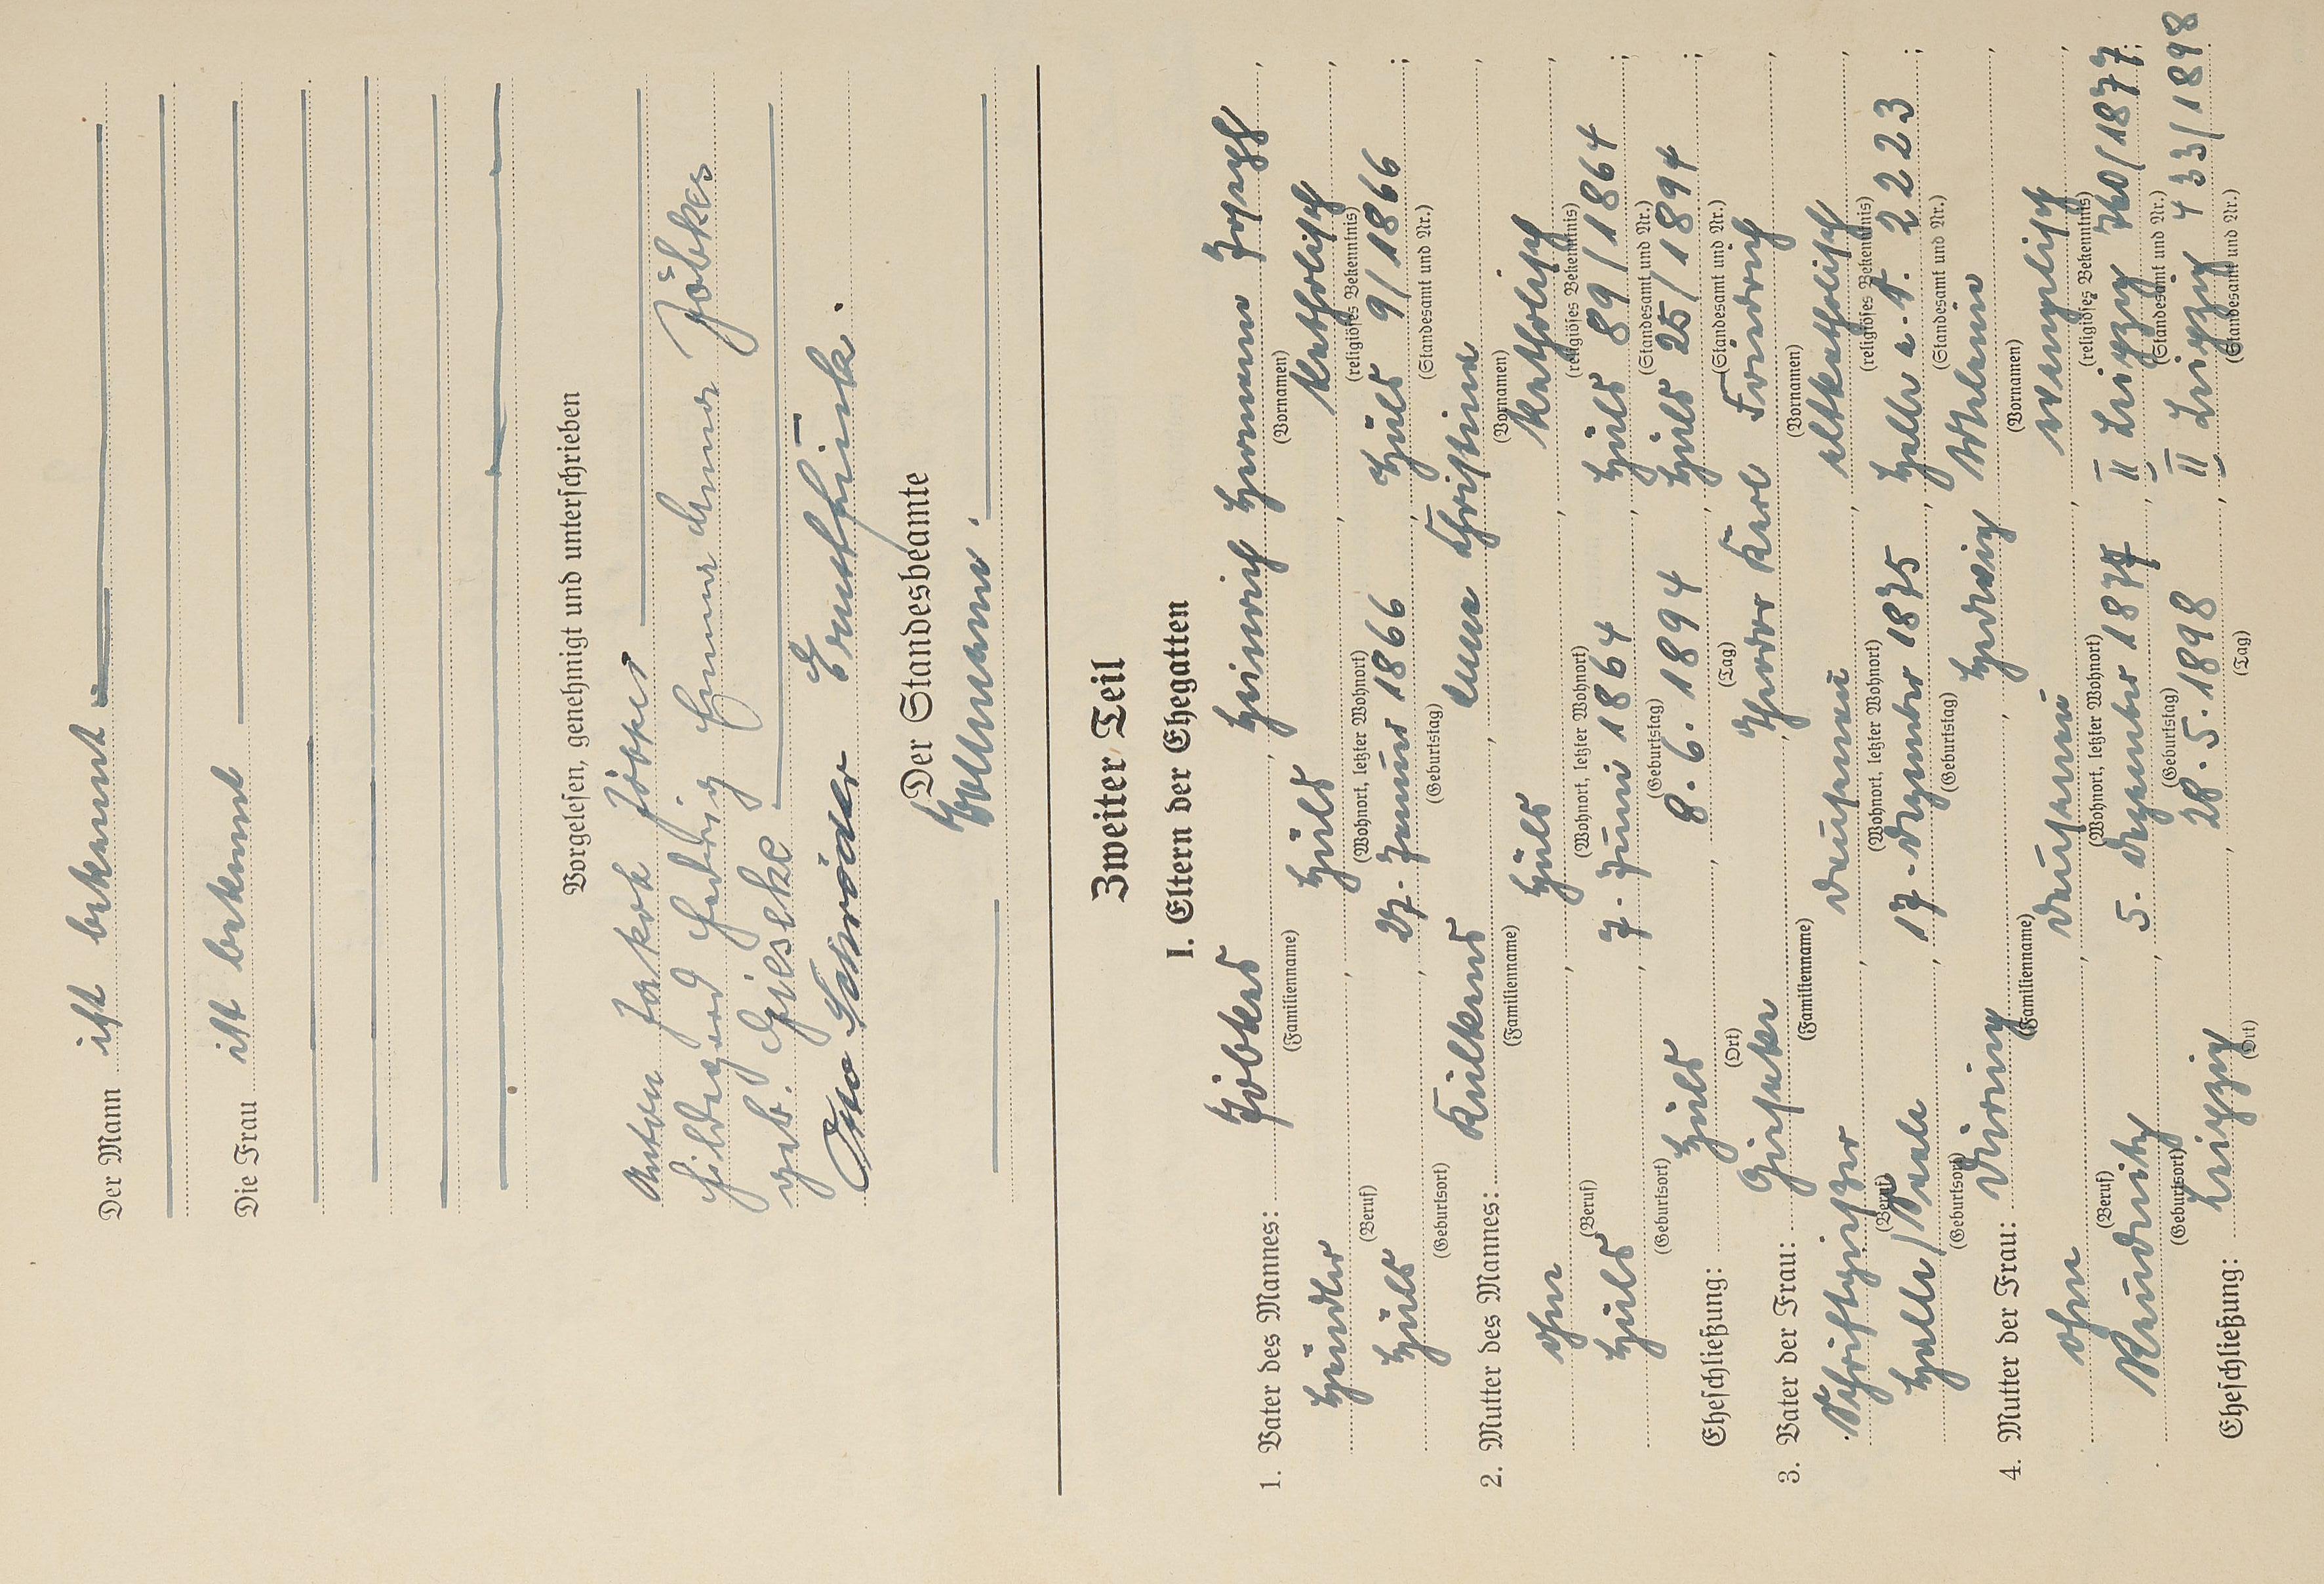 Der Mann ist bekannt.
Die Frau ist bekannt
Vorgelesen, genehmigt und unterschrieben
Anton Jakob Jöbkes
Hildegard Hedwig Emma Anna Jöbkes
geb. Gieseke
Otto Schröder
Der Standesbeamte
Zweiter Teil
I. Eltern der Ehegatten
1. Vater des Mannes: Jöbkes, Heinrich Hermann Joseph,
(Familienname) (Vornamen)
Händler, Hüls, katholisch,
(Beruf) (Wohnort, letzter Wohnort) (religiöses Bekenntnis)
Hüls, 27. Januar 1866, Hüls 9/1866;
(Geburtsort) (Geburtstag) (Standesamt und Nr.)
2. Mutter des Mannes: , Anna Christine,
(Familienname) (Vornamen)
ohne, Hüls, katholisch,
(Beruf) (Wohnort, letzter Wohnort) (religiöses Bekenntnis)
Hüls, 7. Juni 1864, Hüls 89/1864;
(Geburtsort) (Geburtstag) (Standesamt und Nr.)
Eheschließung: Hüls, 8. 6. 1894, Hüls 25/1894;
(Ort) (Tag) (Standesamt und Nr.)
3. Vater der Frau: Gieseke, Theodor Karl Friedrich,
(Familienname) (Vornamen)
Schriftgießer, , altkatholisch,
(Beruf) (Wohnort, letzter Wohnort) (religiöses Bekenntnis)
Halle/Saale, 17. Dezember 1875, Halle a. S. 2223;
(Geburtsort) (Geburtstag) (Standesamt und Nr.)
4. Mutter der Frau: , Hedwig Melanie,
(Familienname) (Vornamen)
ohne, , evangelisch,
(Beruf) (Wohnort, letzter Wohnort) (religiöses Bekenntnis)
Reudnitz, 5. Dezember 1877, II Leipzig 760/1877;
(Geburtsort) (Geburtstag) (Standesamt und Nr.)
Eheschließung: Leipzig, 28. 5. 1898, II Leipzig 433/1898
(Ort) (Tag) (Standesamt und Nr.)